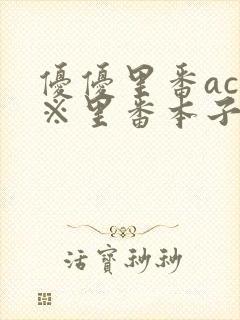 優優里番ac
※里番本子
活寶秒秒